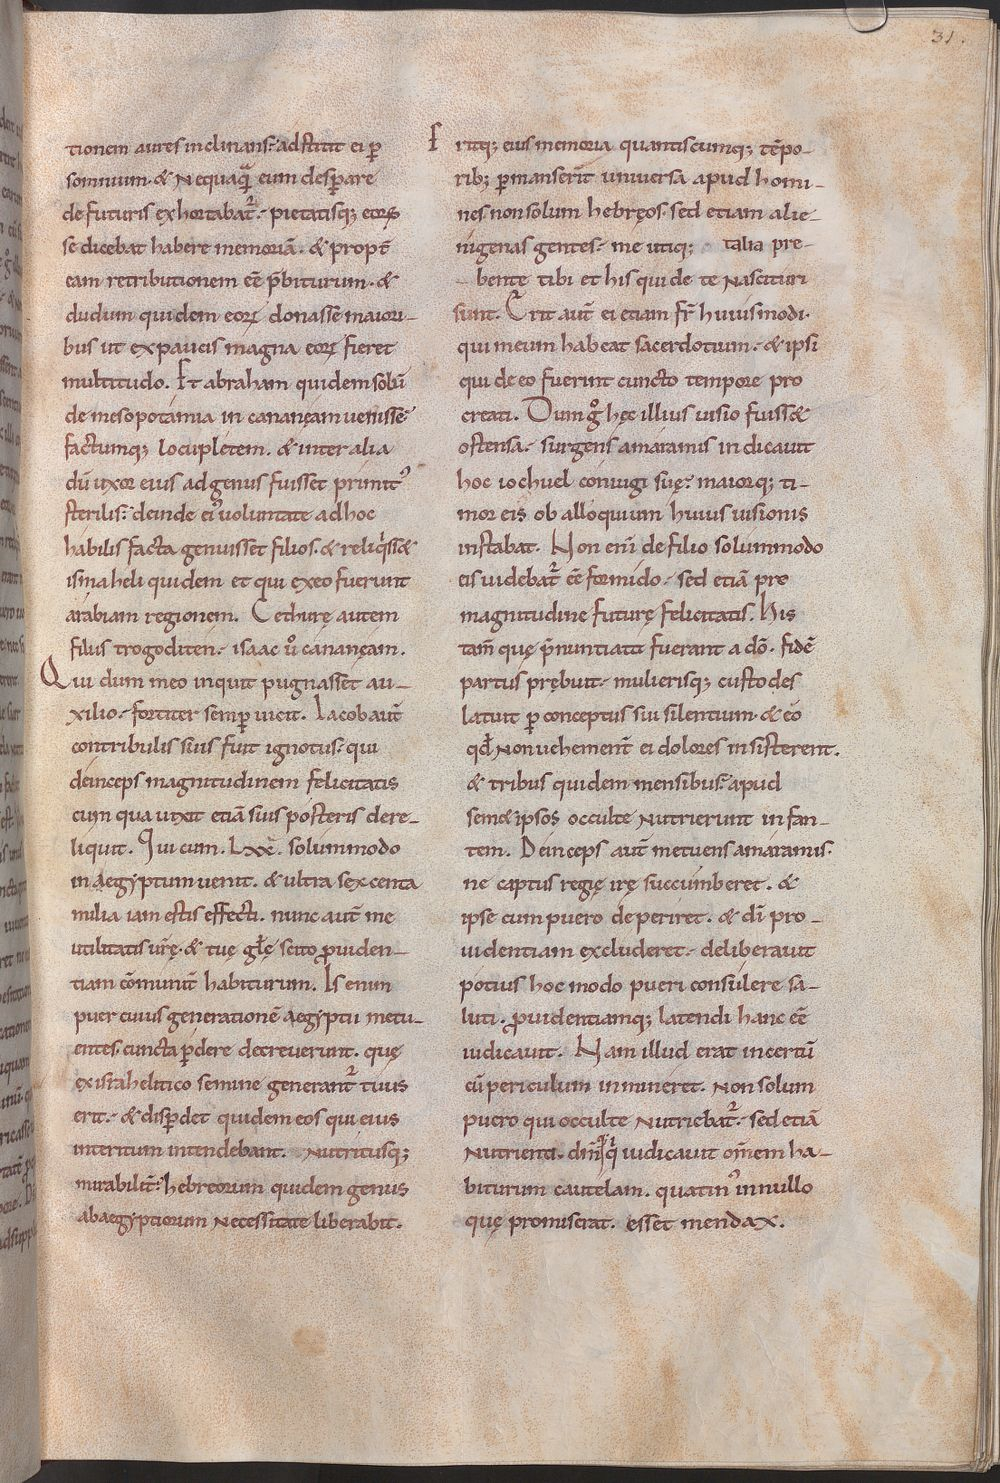 31.
tionem aures inclinans. adstitit ei p̄
somnium. & nequaquā eum desperare
de futuris exhortabat̄. pietatisq; eorū
se dicebat habere memoriā. & propt̄
eam retributionem eē p̄biturum. &
dudum quidem eorū donasse maiori-
bus ut ex paucis magna eorū fieret
multitudo. Et abraham quidem solū
de mesopotamia in cananeam uenisse
factumq; locupletem. & inter alia
dū uxor eius ad genus fuisset primit᾽
sterilis. deinde ei᾽ uoluntate ad hoc
habilis facta genuisset filios. & reliq̄ss&
ismaheli quidem et qui ex eo fuerunt
arabiam regionem. Cethurę autem
filius trogoditen. isaac ů cananęam.
Qui dum meo inquit pugnasset au-
xilio. fortiter semp̄ uicit. Iacob aut̄
contribulis suis fuit ignotus. qui
deinceps magnitudinem felicitatis
cum qua uixit etiā suis posteris dere-
liquit. Qui cum. Lxx. solummodo
in aegyptum uenit. & ultra sexcenta
milia iam estis effecti. nunc aut̄ me
utilitatis ur̄ę. & tuę gl̄ę scito prouiden-
tiam cōmunit̄ habiturum. Is enim
puer cuius generationē aegyptii metu-
entes. cuncta p̄dere decreuerunt. quę
ex israhelitico semine generant̄ tuus
erit. & disp̄det quidem eos qui eius
interitum intendebant. Nutritusq;
mirabilit̄. hebreorum quidem genus
ab aegyptiorum necessitate liberabit.
Eritq; eius memoria quantiscumq; tēpo-
rib; p̄manserit uniuersa apud homi-
nes. non solum hebręos. sed etiam alie-
nigenas gentes. me utiq; talia pre-
bente tibi et his qui de te nascituri
sunt. Erit aut̄ ei etiam fr̄ huiusmodi.
qui meum habeat sacerdotium. & ipsi
qui de eo fuerint cuncto tempore pro
creati. Dum g̊ hęc illius uisio fuiss&
ostensa. surgens amaramis indicauit
hoc iochuel coniugi suę. maiorq; ti-
mor eis ob alloquium huius uisionis
instabat. Non eni de filio solummodo
eis uidebat̄ eē formido. sed etiā pro
magnitudine futurę felicitatis. His
tam̄ quę p̄nuntiata fuerant a dō. fidē
partus prębuit. mulierisq; custodes
latuit p̄ conceptus sui silentium. & eo
qd̄ non uehement̄ ei dolores insisterent.
& tribus quidem mensibus. apud
semet ipsos occulte nutrierunt infan-
tem. Deinceps aut̄ metuens amaramis.
ne captus regię irę succumberet. &
ipse cum puero deperiret. & di pro-
uidentiam excluderet. deliberauit
potius hoc modo pueri consulere sa-
luti. prouidentiamq; latendi hanc eē
iudicauit. Nam illud erat incertū
cū periculum inmineret. non solum
puero qui occulte nutriebat̄. sed etiā
nutrienti. dm̄ iudicauit om̄em ha-
biturum cautelam. quatin᾽ in nullo
quę promiserat. esset mendax.